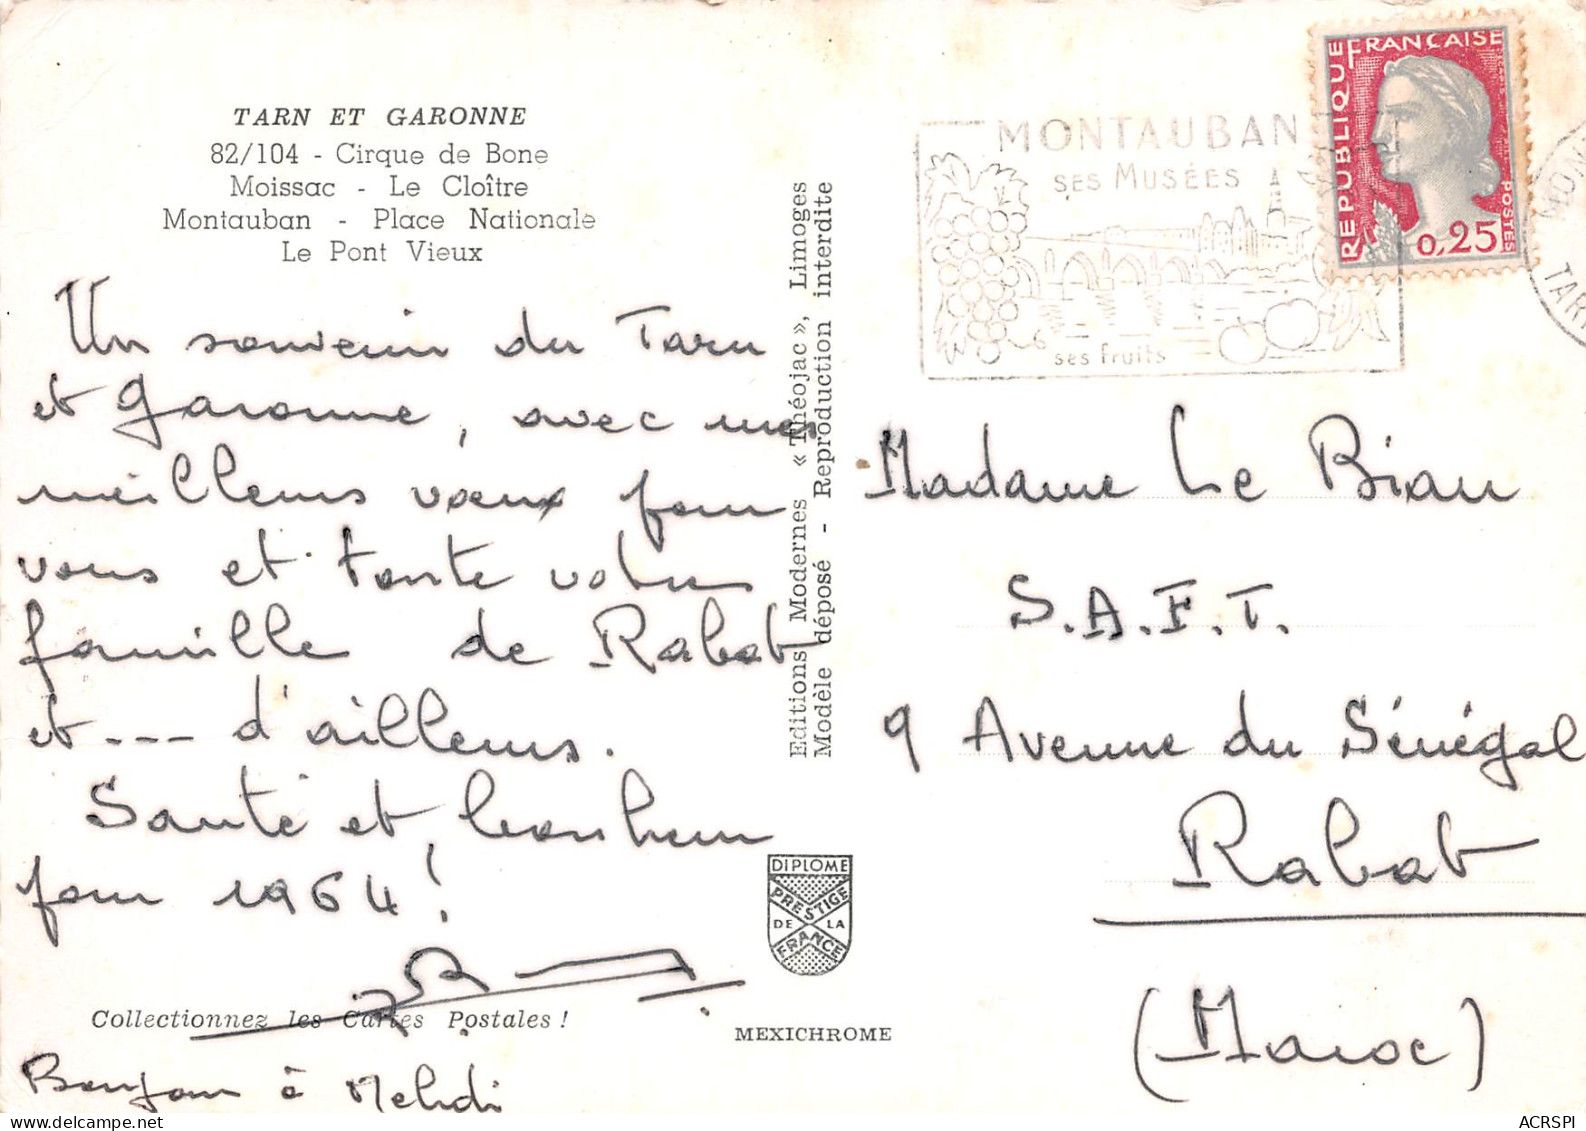 TARN ET GARONNE
82/104 - Cirque de Bone
Moissac - Le Cloître
Montauban - Place Nationale
Le Pont Vieux
Un souvenir du Tarn
et Garonne, avec mes
meilleurs vœux pour
vous et toute votre
famille de Rabat
et --- d'ailleurs.
Santé et bonheur
pour 1964!
Collectionnez les Cartes Postales !
Bonjour à Mehdi
Editions Modernes « Théojac », Limoges
Modèle déposé - Reproduction interdite
DIPLOME
PRESTIGE
DE LA
FRANCE
MEXICHROME
MONTAUBAN
SES MUSÉES
ses fruits
REPUBLIQUE FRANÇAISE
POSTES
0,25
MONT
TARN
Madame Le Bian
S.A.F.T.
9 Avenue du Sénégal
Rabat
(Maroc)
ACRSPI